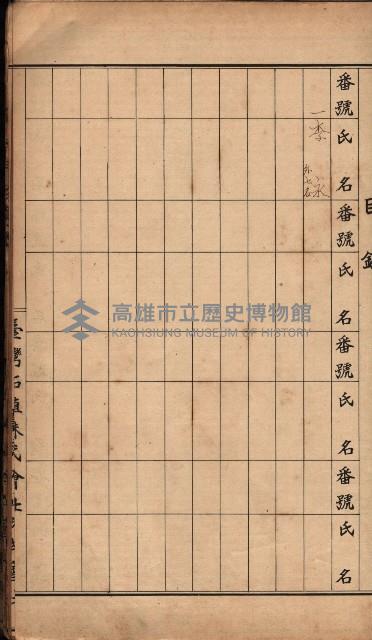 目錄
番號 氏名 番號 氏名 番號 氏名 番號 氏名
一 李 永
外七名
高雄市立歷史博物館
KAOHSIUNG MUSEUM OF HISTORY
臺灣拓殖株式會社